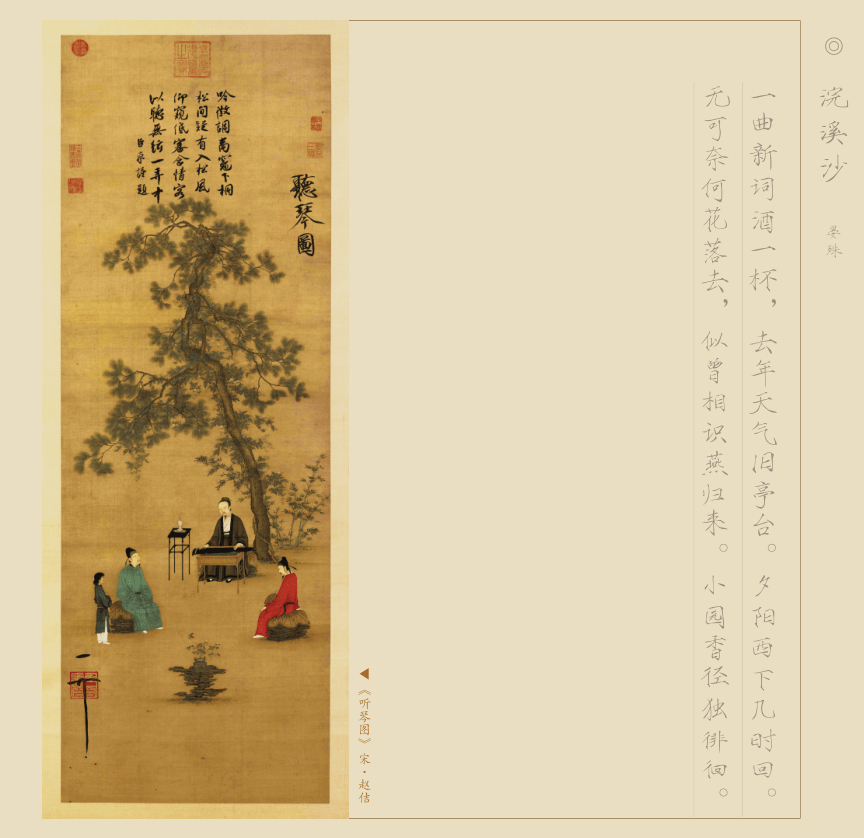 浣溪沙
晏殊
一曲新词酒一杯，去年天气旧亭台。夕阳西下几时回。
无可奈何花落去，似曾相识燕归来。小园香径独徘徊。
《听琴图》宋·赵佶
聽琴圖
吟徵調商竈下桐
松間疑有入松風
仰窺低審含情客
以聽無絃一弄中
臣京謹題